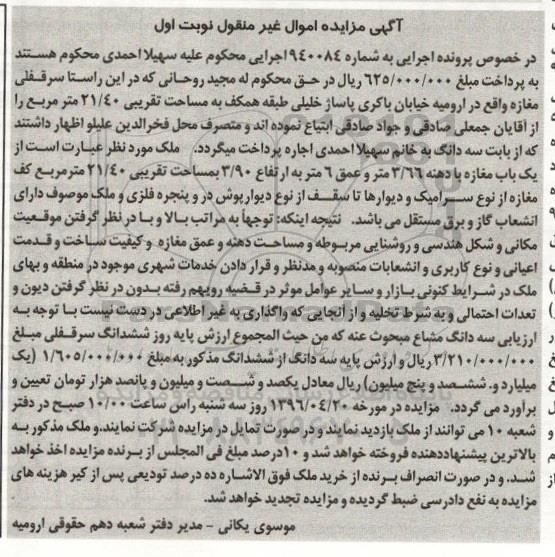 آگهی مزایده اموال غیر منقول نوبت اول
در خصوص پرونده اجرایی به شماره ۹۴۰۰۸۴ اجرایی محکوم علیه سهیلا احمدی محکوم هستند
به پرداخت مبلغ ۶۲۵/۰۰۰/۰۰۰ ریال در حق محکوم له مجید روحانی که در این راستا سرقفلی
مغازه واقع در ارومیه خیابان باکری پاساژ خلیلی طبقه همکف به مساحت تقریبی ۲۱/۴۰ متر مربع را
از آقایان جمعلی صادقی و جواد صادقی ابتیاع نموده اند و متصرف محل فخرالدین علیلو اظهار داشتند
که از بابت سه دانگ به خانم سهیلا احمدی اجاره پرداخت میگردد. ملک مورد نظر عبارت است از
یک باب مغازه با دهنه ۳/۶۶ متر و عمق ۶ متر به ارتفاع ۳/۹۰ بمساحت تقریبی ۲۱/۴۰ مترمربع کف
مغازه از نوع سرامیک و دیوارها تا سقف از نوع دیوارپوش در و پنجره فلزی و ملک موصوف دارای
انشعاب گاز و برق مستقل می باشد. نتیجه اینکه: توجهاً به مراتب بالا و با در نظر گرفتن موقعیت
مکانی و شکل هندسی و روشنایی مربوطه و مساحت دهنه و عمق مغازه و کیفیت ساخت و قدمت
اعیانی و نوع کاربری و انشعابات منصوبه و مدنظر و قرار دادن خدمات شهری موجود در منطقه و بهای
ملک در شرایط کنونی بازار و سایر عوامل موثر در قضیه رویهم رفته بدون در نظر گرفتن دیون و
تعدات احتمالی و به شرط تخلیه و از آنجایی که واگذاری به غیر اطلاعی در دست نیست با توجه به
ارزیابی سه دانگ مشاع مبحوث عنه که من حیث المجموع ارزش پایه روز ششدانگ سرقفلی مبلغ
۳/۲۱۰/۰۰۰/۰۰۰ ریال و ارزش پایه سه دانگ از ششدانگ مذکور به مبلغ ۱/۶۰۵/۰۰۰/۰۰۰ (یک
میلیارد و. ششصد و پنج میلیون) ریال معادل یکصد و شصت و میلیون و پانصد هزار تومان تعیین و
براورد می گردد. مزایده در مورخه ۱۳۹۶/۰۴/۲۰ روز سه شنبه راس ساعت ۱۰/۰۰ صبح در دفتر
شعبه ۱۰ می توانند از ملک بازدید نمایند و در صورت تمایل در مزایده شرکت نمایند.و ملک مذکور به
بالاترین پیشنهاددهنده فروخته خواهد شد و ۱۰درصد مبلغ فی المجلس از برنده مزایده اخذ خواهد
شد. و در صورت انصراف برنده از خرید ملک فوق الاشاره ده درصد تودیعی پس از کیر هزینه های
مزایده به نفع دادرسی ضبط گردیده و مزایده تجدید خواهد شد.
موسوی یکانی - مدیر دفتر شعبه دهم حقوقی ارومیه